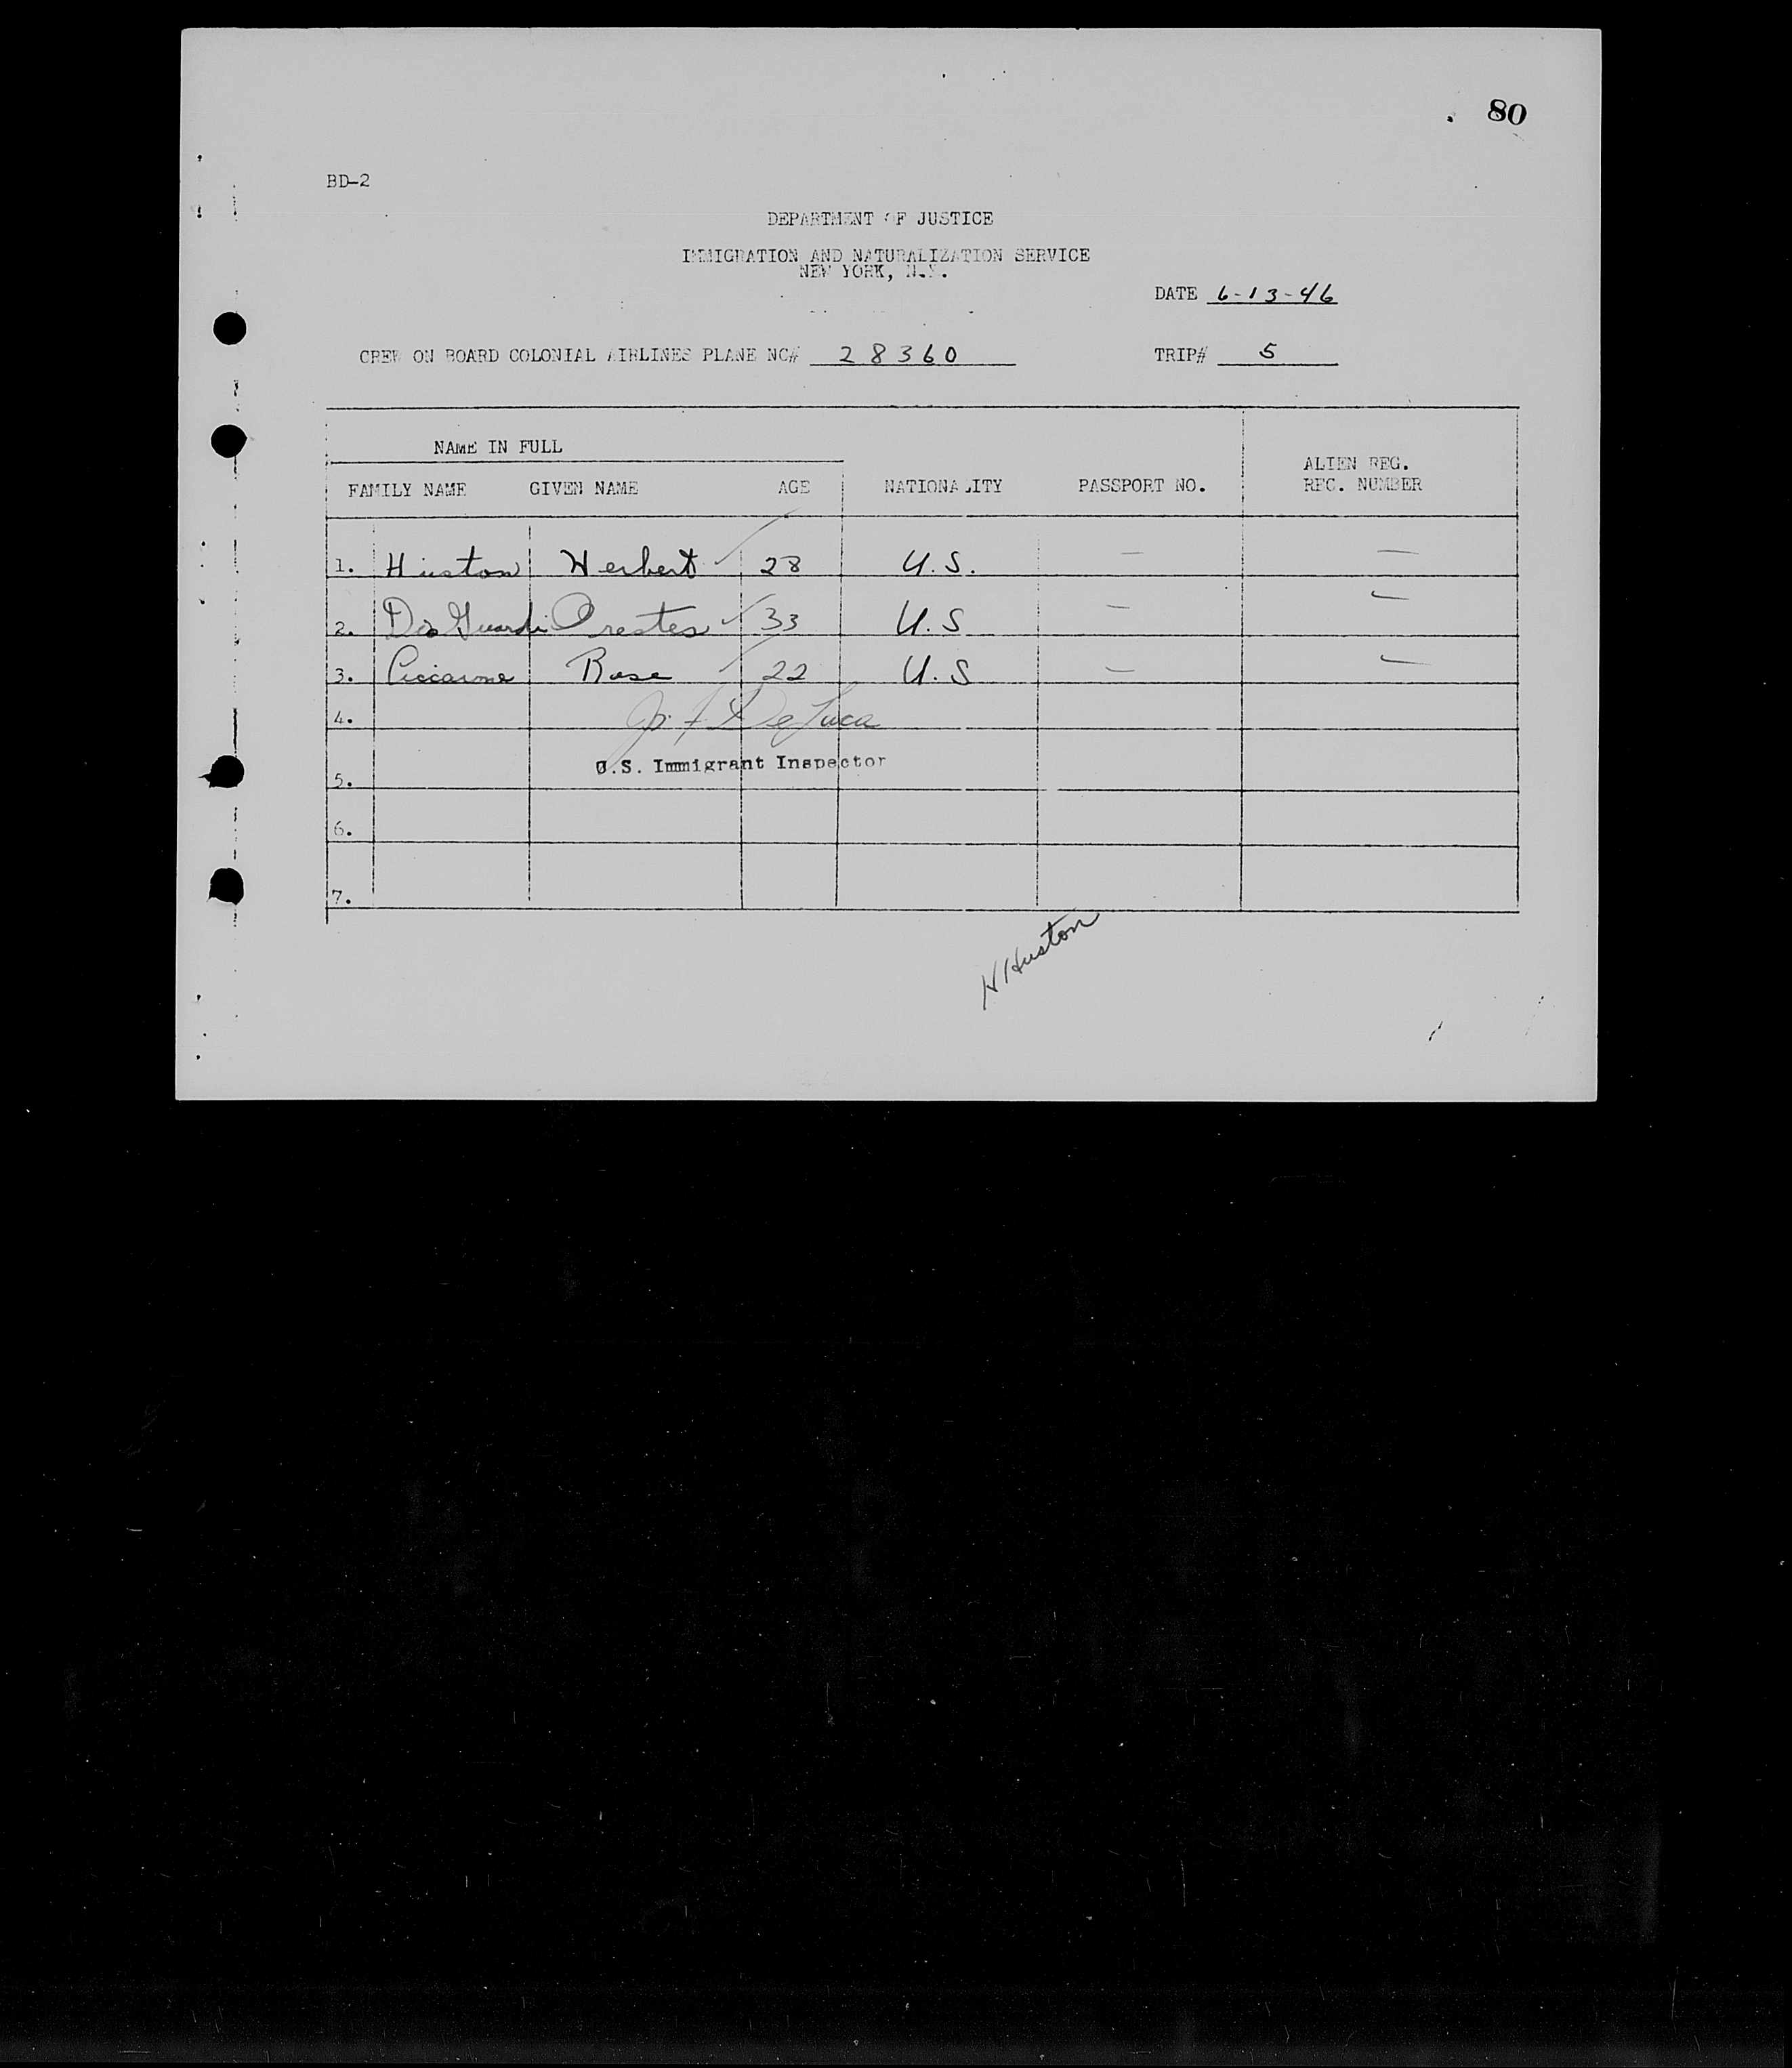 80
BD-2
DEPARTMENT OF JUSTICE
IMMIGRATION AND NATURALIZATION SERVICE
NEW YORK, N.Y.
DATE 6-13-46
CREW ON BOARD COLONIAL AIRLINES PLANE NC# 28360 TRIP# 5
NAME IN FULL
ALIEN REG.
FAMILY NAME GIVEN NAME AGE NATIONALITY PASSPORT NO. REC. NUMBER
1. Huston Herbert ✓ 28 U.S. — —
2. DioGuardi Orestes ✓ 33 U.S — —
3. Ciccarone Rose ✓ 22 U.S — —
4. De Luca
U.S. Immigrant Inspector
5.
6.
7.
H Huston